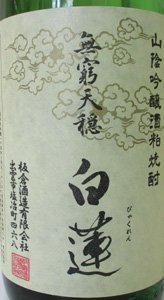 山陰吟醸酒粕焼酎
無窮天穏
白蓮
びゃくれん
板倉酒造有限会社
出雲市塩冶町四六八